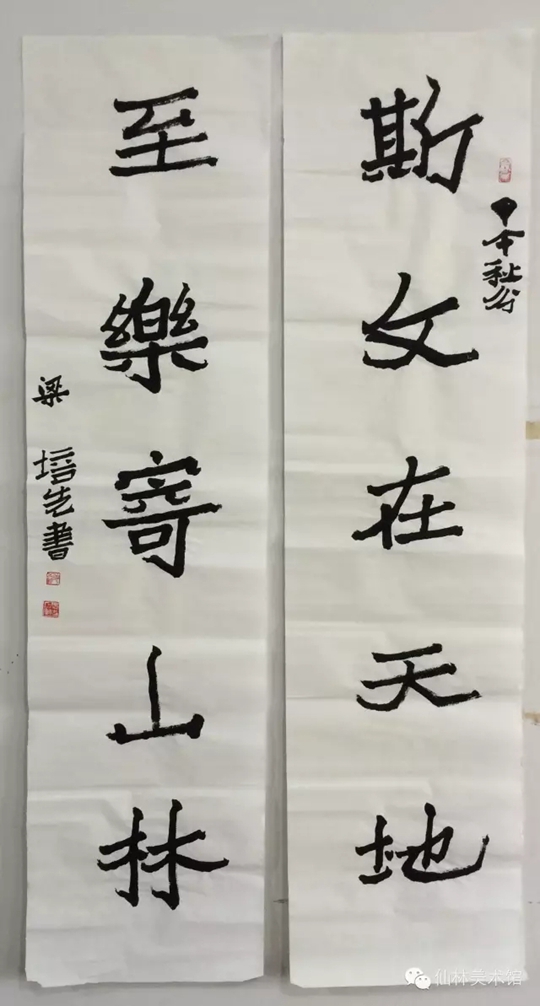 斯文在天地
秋分
至樂寄山林
梁培先書
仙林美术馆